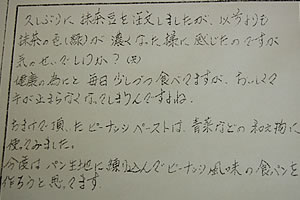 久しぶりに抹茶豆を注文しましたが、以前よりも
抹茶の色(緑)が濃くなった様に感じたのですが
気のせいでしょうか？(笑)
健康の為にと毎日少しづつ食べてますが、おいしくて
手が止まらなくなってしまうんですよね。
おまけで頂いたピーナッツペーストは、青菜などの和え物に
使ってみました。
今度はパン生地に練り込んでピーナッツ風味の食パンを
作ろうと思ってます。